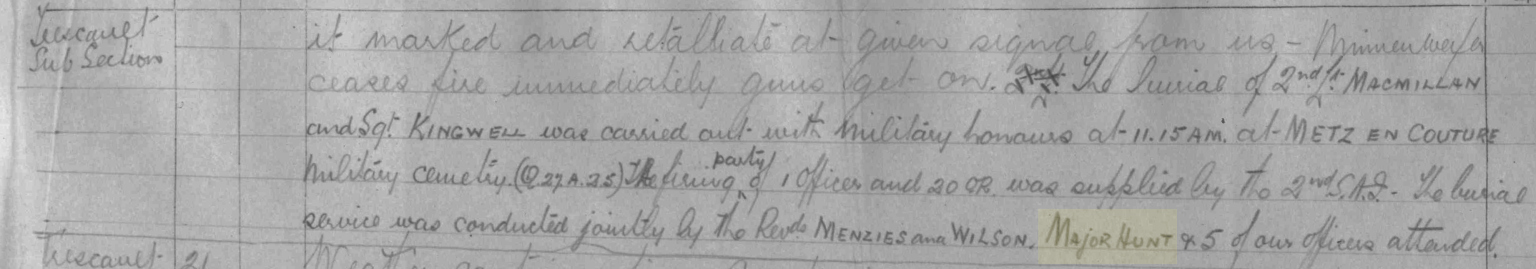 Trescault
Sub Section
it marked and retalliate at given signal from us - Minnenwafer
ceases fire immediately guns get on. The burial of 2nd Lt. MACMILLAN
and Sgt KINGWELL was carried out with military honours at 11.15 AM. at METZ EN COUTURE
military cemetry. (Q 27 A. 25) The firing party of 1 Officer and 20 OR. was supplied by the 2nd S.A.I. The burial
service was conducted jointly by the Revds MENZIES and WILSON. MAJOR HUNT & 5 of our officers attended.
Trescault 21